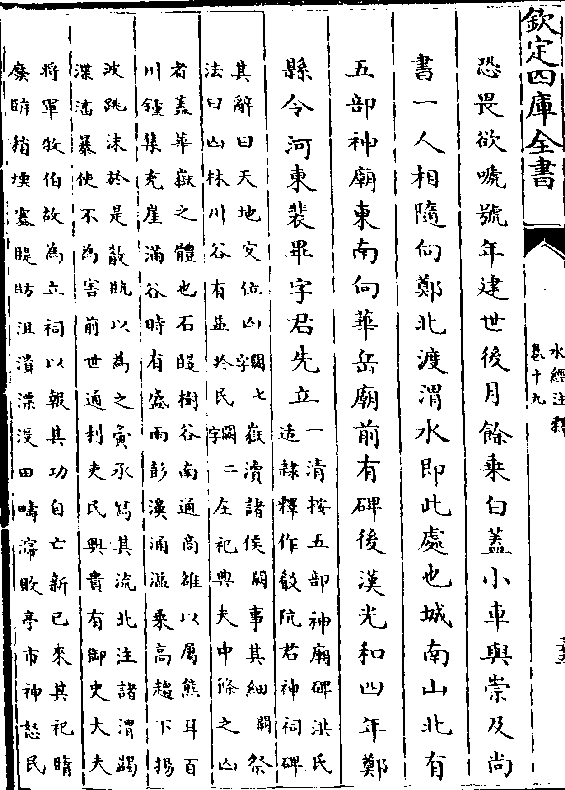 欽定四庫全書
水經注釋
卷十九
恐畏欲唬號年建世後月餘乗白蓋小車與崇及尚
書一人相隨向鄭北渡渭水即此處也城南山北有
五部神廟東南向華岳廟前有碑後漢光和四年鄭
縣令河東裴畢字君先立
一清按五部神廟碑洪氏
造隸釋作殽阬君神祠碑
其辭曰天地定位山闕七字嶽瀆諸侯闕事其細闕祭
法曰山林川谷有益於民闕二字在祀典夫中條之山
者蓋華嶽之體也石隄樹谷南通高雒以屬熊耳百
川鍾集充崖滿谷時有盛雨彭濞涌溢乗高趨下揚
波跳沫於是散毗以為之寅承寫其流北注諸渭蠲
渫潘暴使不為害前世通利吏民興貴有御史大夫
將軍牧伯故為立祠以報其功自亡新已來其祀隋
廢稍堙塞隄防沮潰漂没田疇寖敗亭市神怒民